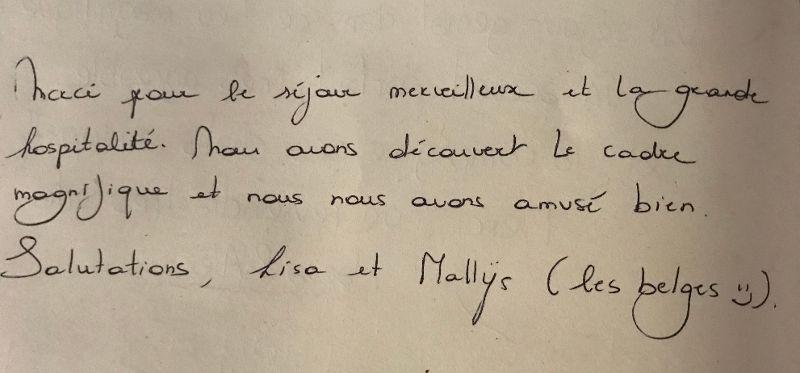 Merci pour le séjour merveilleux et la grande
hospitalité. Nous avons découvert le cadre
magnifique et nous nous avons amusé bien.
Salutations, Lisa et Mallÿs (les belges :)).